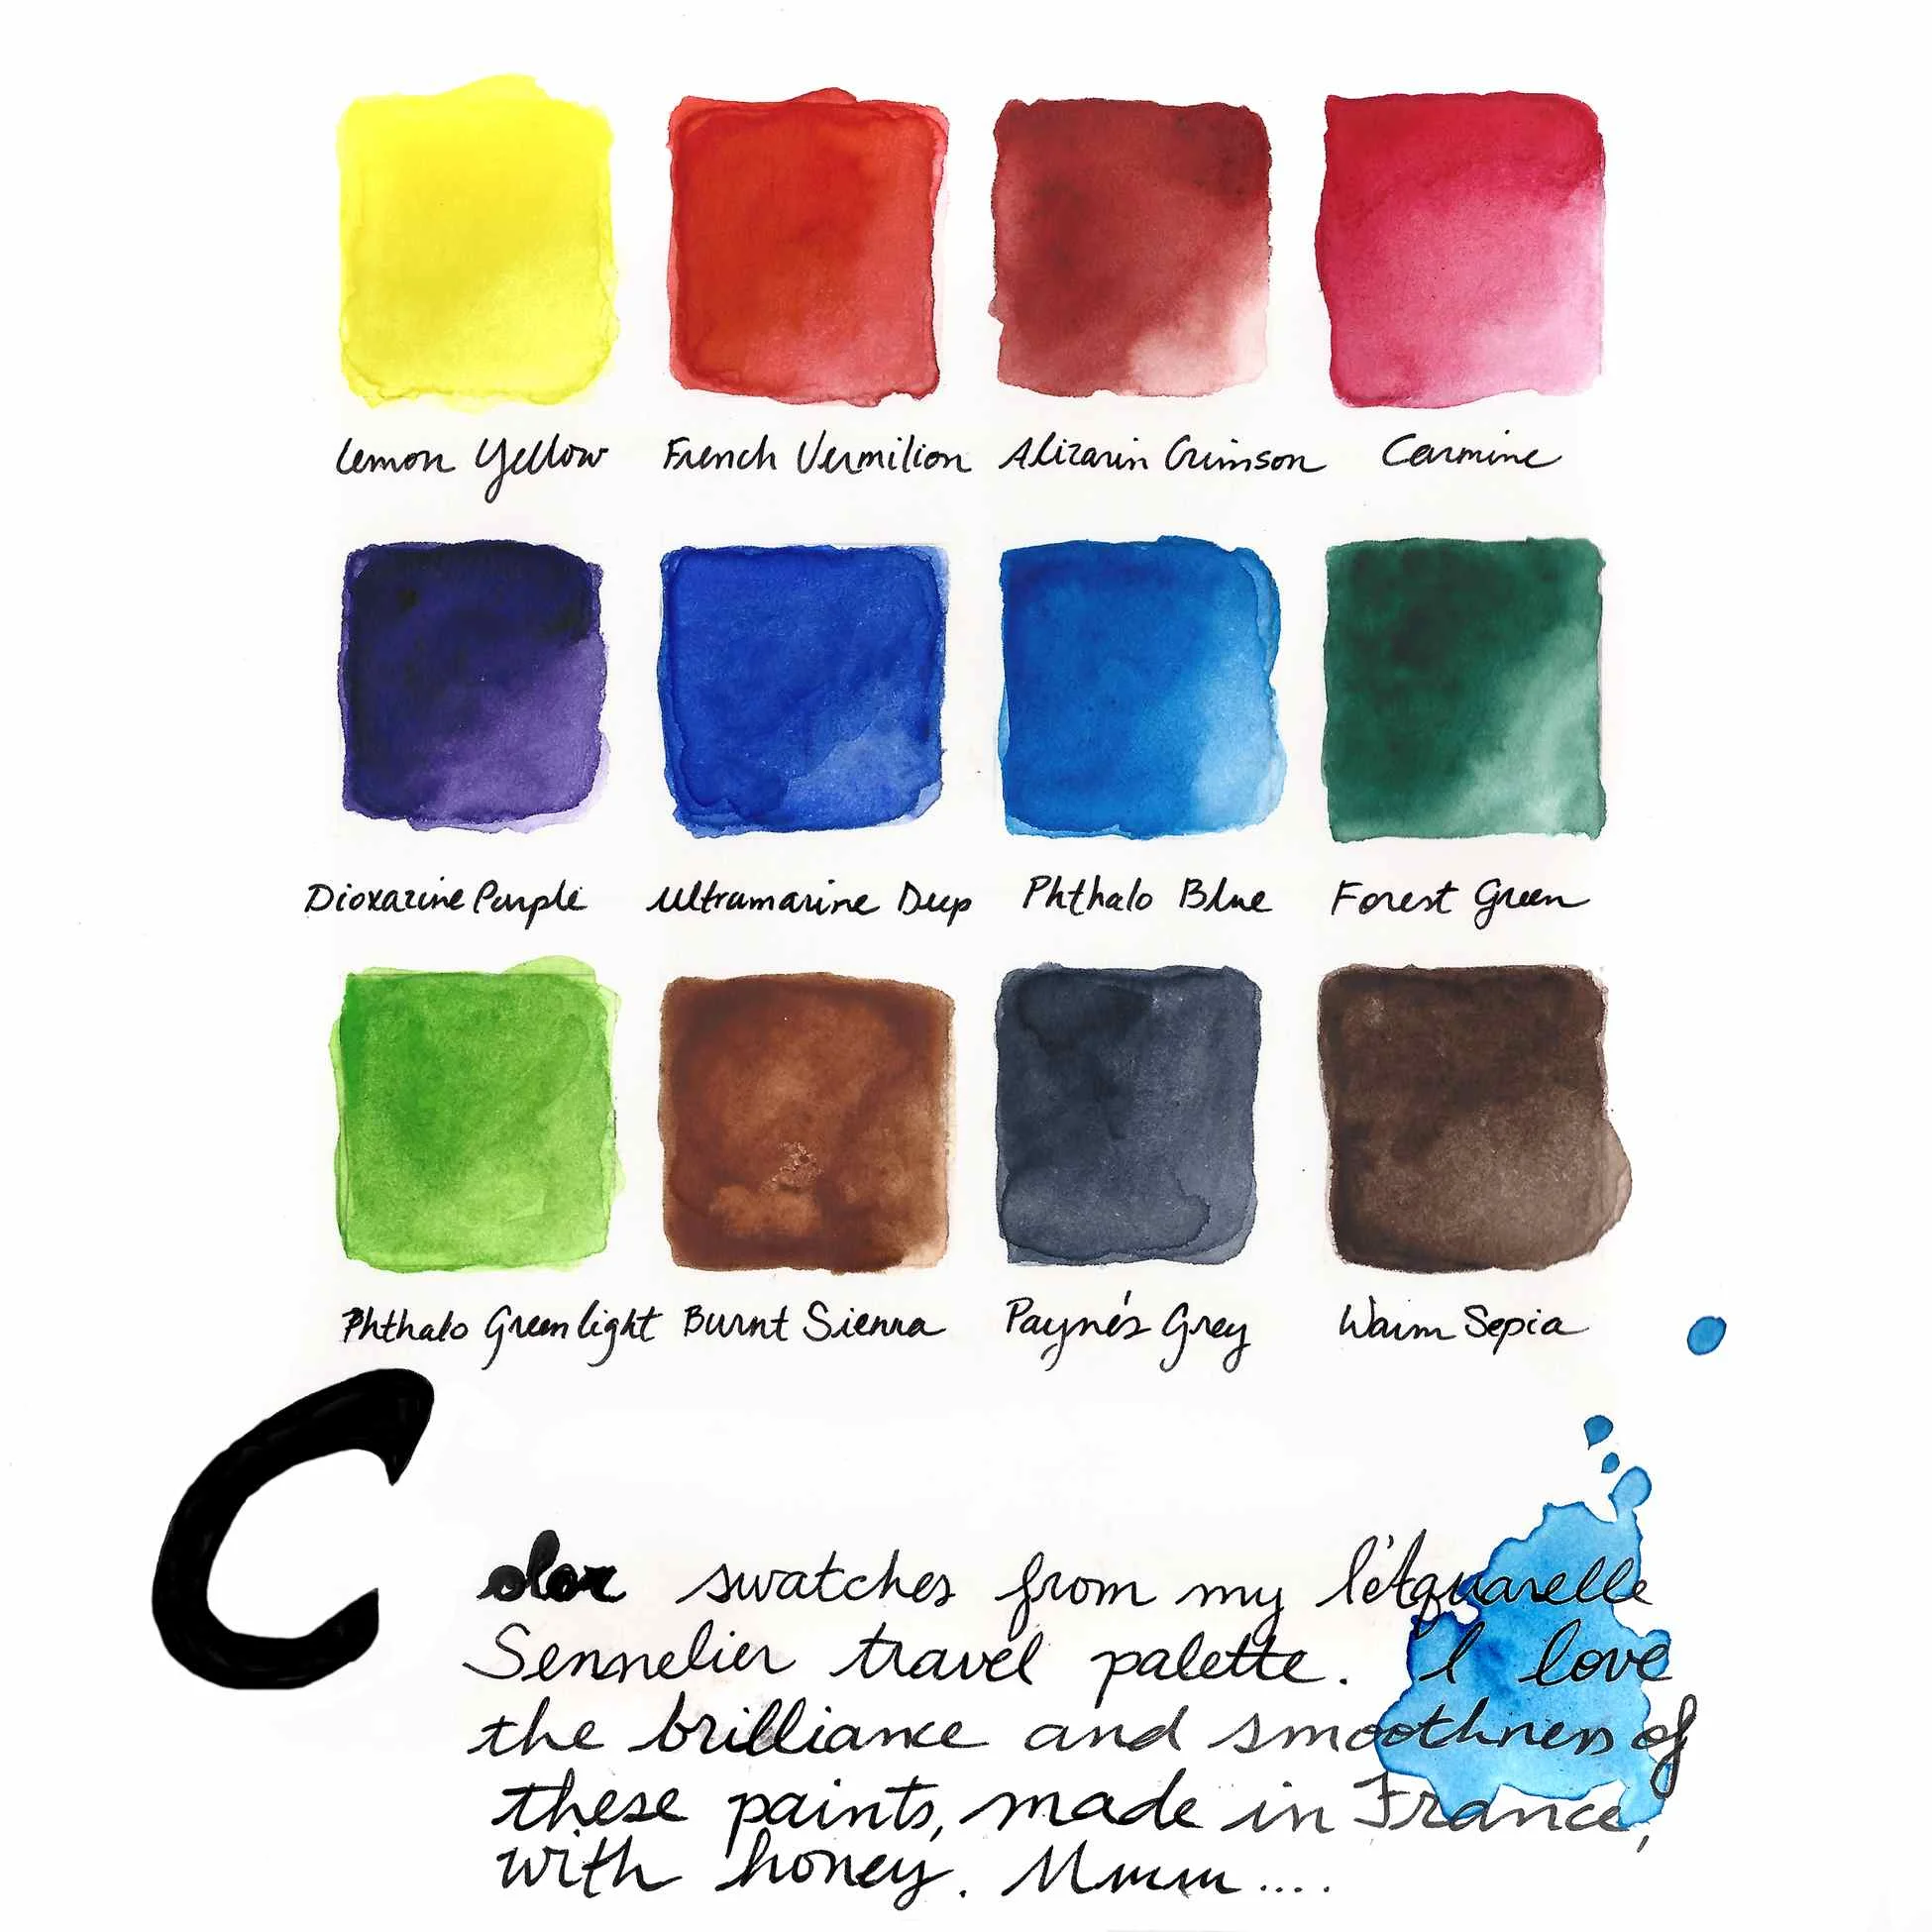 Lemon Yellow French Vermilion Alizarin Crimson Carmine
Dioxazine Purple Ultramarine Deep Phthalo Blue Forest Green
Phthalo Green light Burnt Sienna Payne's Grey Warm Sepia
Color swatches from my l'étquarelle
Sennelier travel palette. I love
the brilliance and smoothness of
these paints, made in France,
with honey. Mmmm....